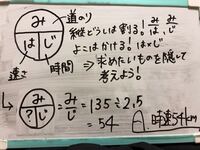 道のり
縦どうしは割る! み/は、み/じ
よこはかける! は×じ
⇒求めたいものを隠して
考えよう!
み
は じ
速さ 時間
み
? じ
= み/じ = 135÷2.5
= 54 A. 時速54km